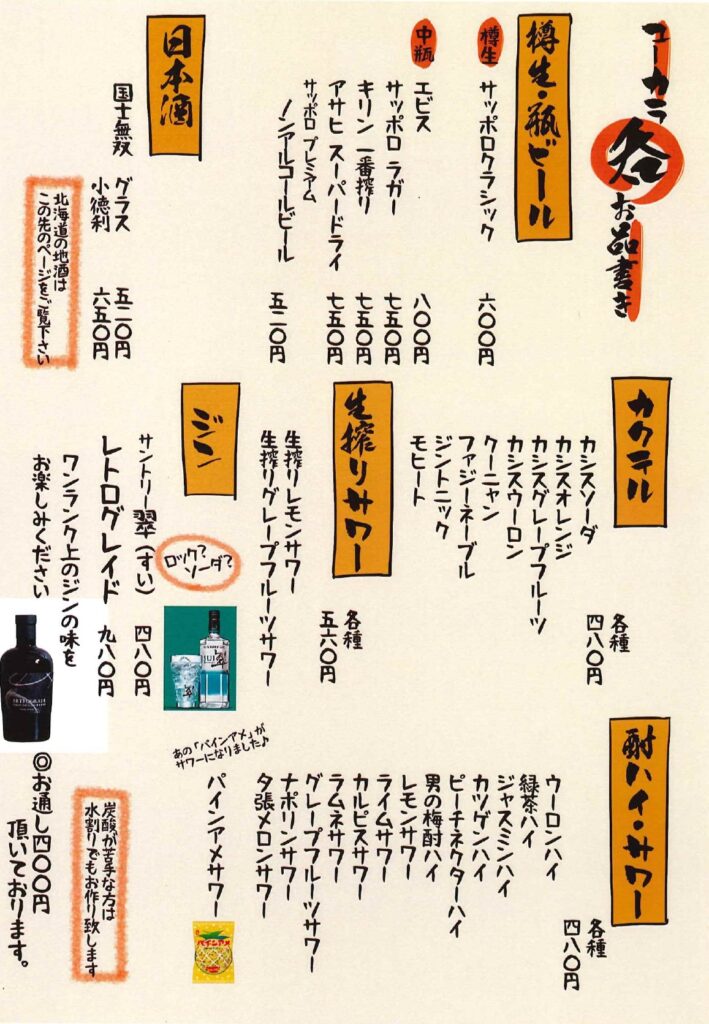 ユーカラ
各
お品書き
樽生・瓶ビール
樽生
サッポロクラシック 六〇〇円
中瓶
エビス 八〇〇円
サッポロ ラガー 七五〇円
キリン 一番搾り 七五〇円
アサヒ スーパードライ 七五〇円
サッポロ プレミアム
ノンアルコールビール 五二〇円
日本酒
国士無双 グラス 五二〇円
小徳利 六五〇円
北海道の地酒は
この先のページをご覧下さい
カクテル
各種
四八〇円
カシスソーダ
カシスオレンジ
カシスグレープフルーツ
カシスウーロン
クーニャン
ファジーネーブル
ジントニック
モヒート
生搾りサワー
各種
五六〇円
生搾りレモンサワー
生搾りグレープフルーツサワー
ジン
ロック?
ソーダ?
サントリー 翠(すい) 四八〇円
レトログレイド 九八〇円
ワンランク上のジンの味を
お楽しみください
酎ハイ・サワー
各種
四八〇円
ウーロンハイ
緑茶ハイ
ジャスミンハイ
カツゲンハイ
ピーチネクターハイ
男の梅酎ハイ
レモンサワー
ライムサワー
カルピスサワー
ラムネサワー
グレープフルーツサワー
ナポリンサワー
夕張メロンサワー
あの「パインアメ」が
サワーになりました♪
パインアメサワー
パインアメ
炭酸が苦手な方は
水割りでもお作り致します
◎お通し四〇〇円
頂いております。